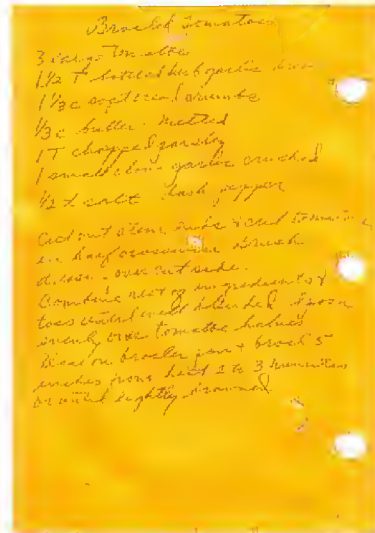 Broiled Tomatoes
3 large Tomatoes
1½ T bottled herb garlic
1⅓ c soft bread crumbs
⅓ c butter. Melted
1 T chopped parsley
1 small clove garlic crushed
½ t salt dash pepper
Cut out stem ends & cut tomatoes
in half crosswise
over cut side.
Combine rest of ingredients &
toss until well blended. Spoon
evenly over tomatoe halves
Place on broiler pan & broil 5
inches from heat 2 to 3 minutes
or until lightly browned.